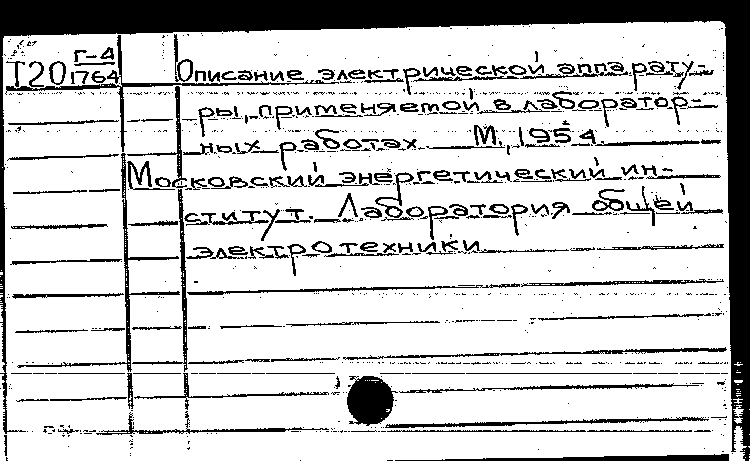 Т20 Г-4
1764
Описание электрической аппарату-
ры, применяемой в лаборатор-
ных работах. М., 1954.
Московский энергетический ин-
ститут. Лаборатория общей
электротехники